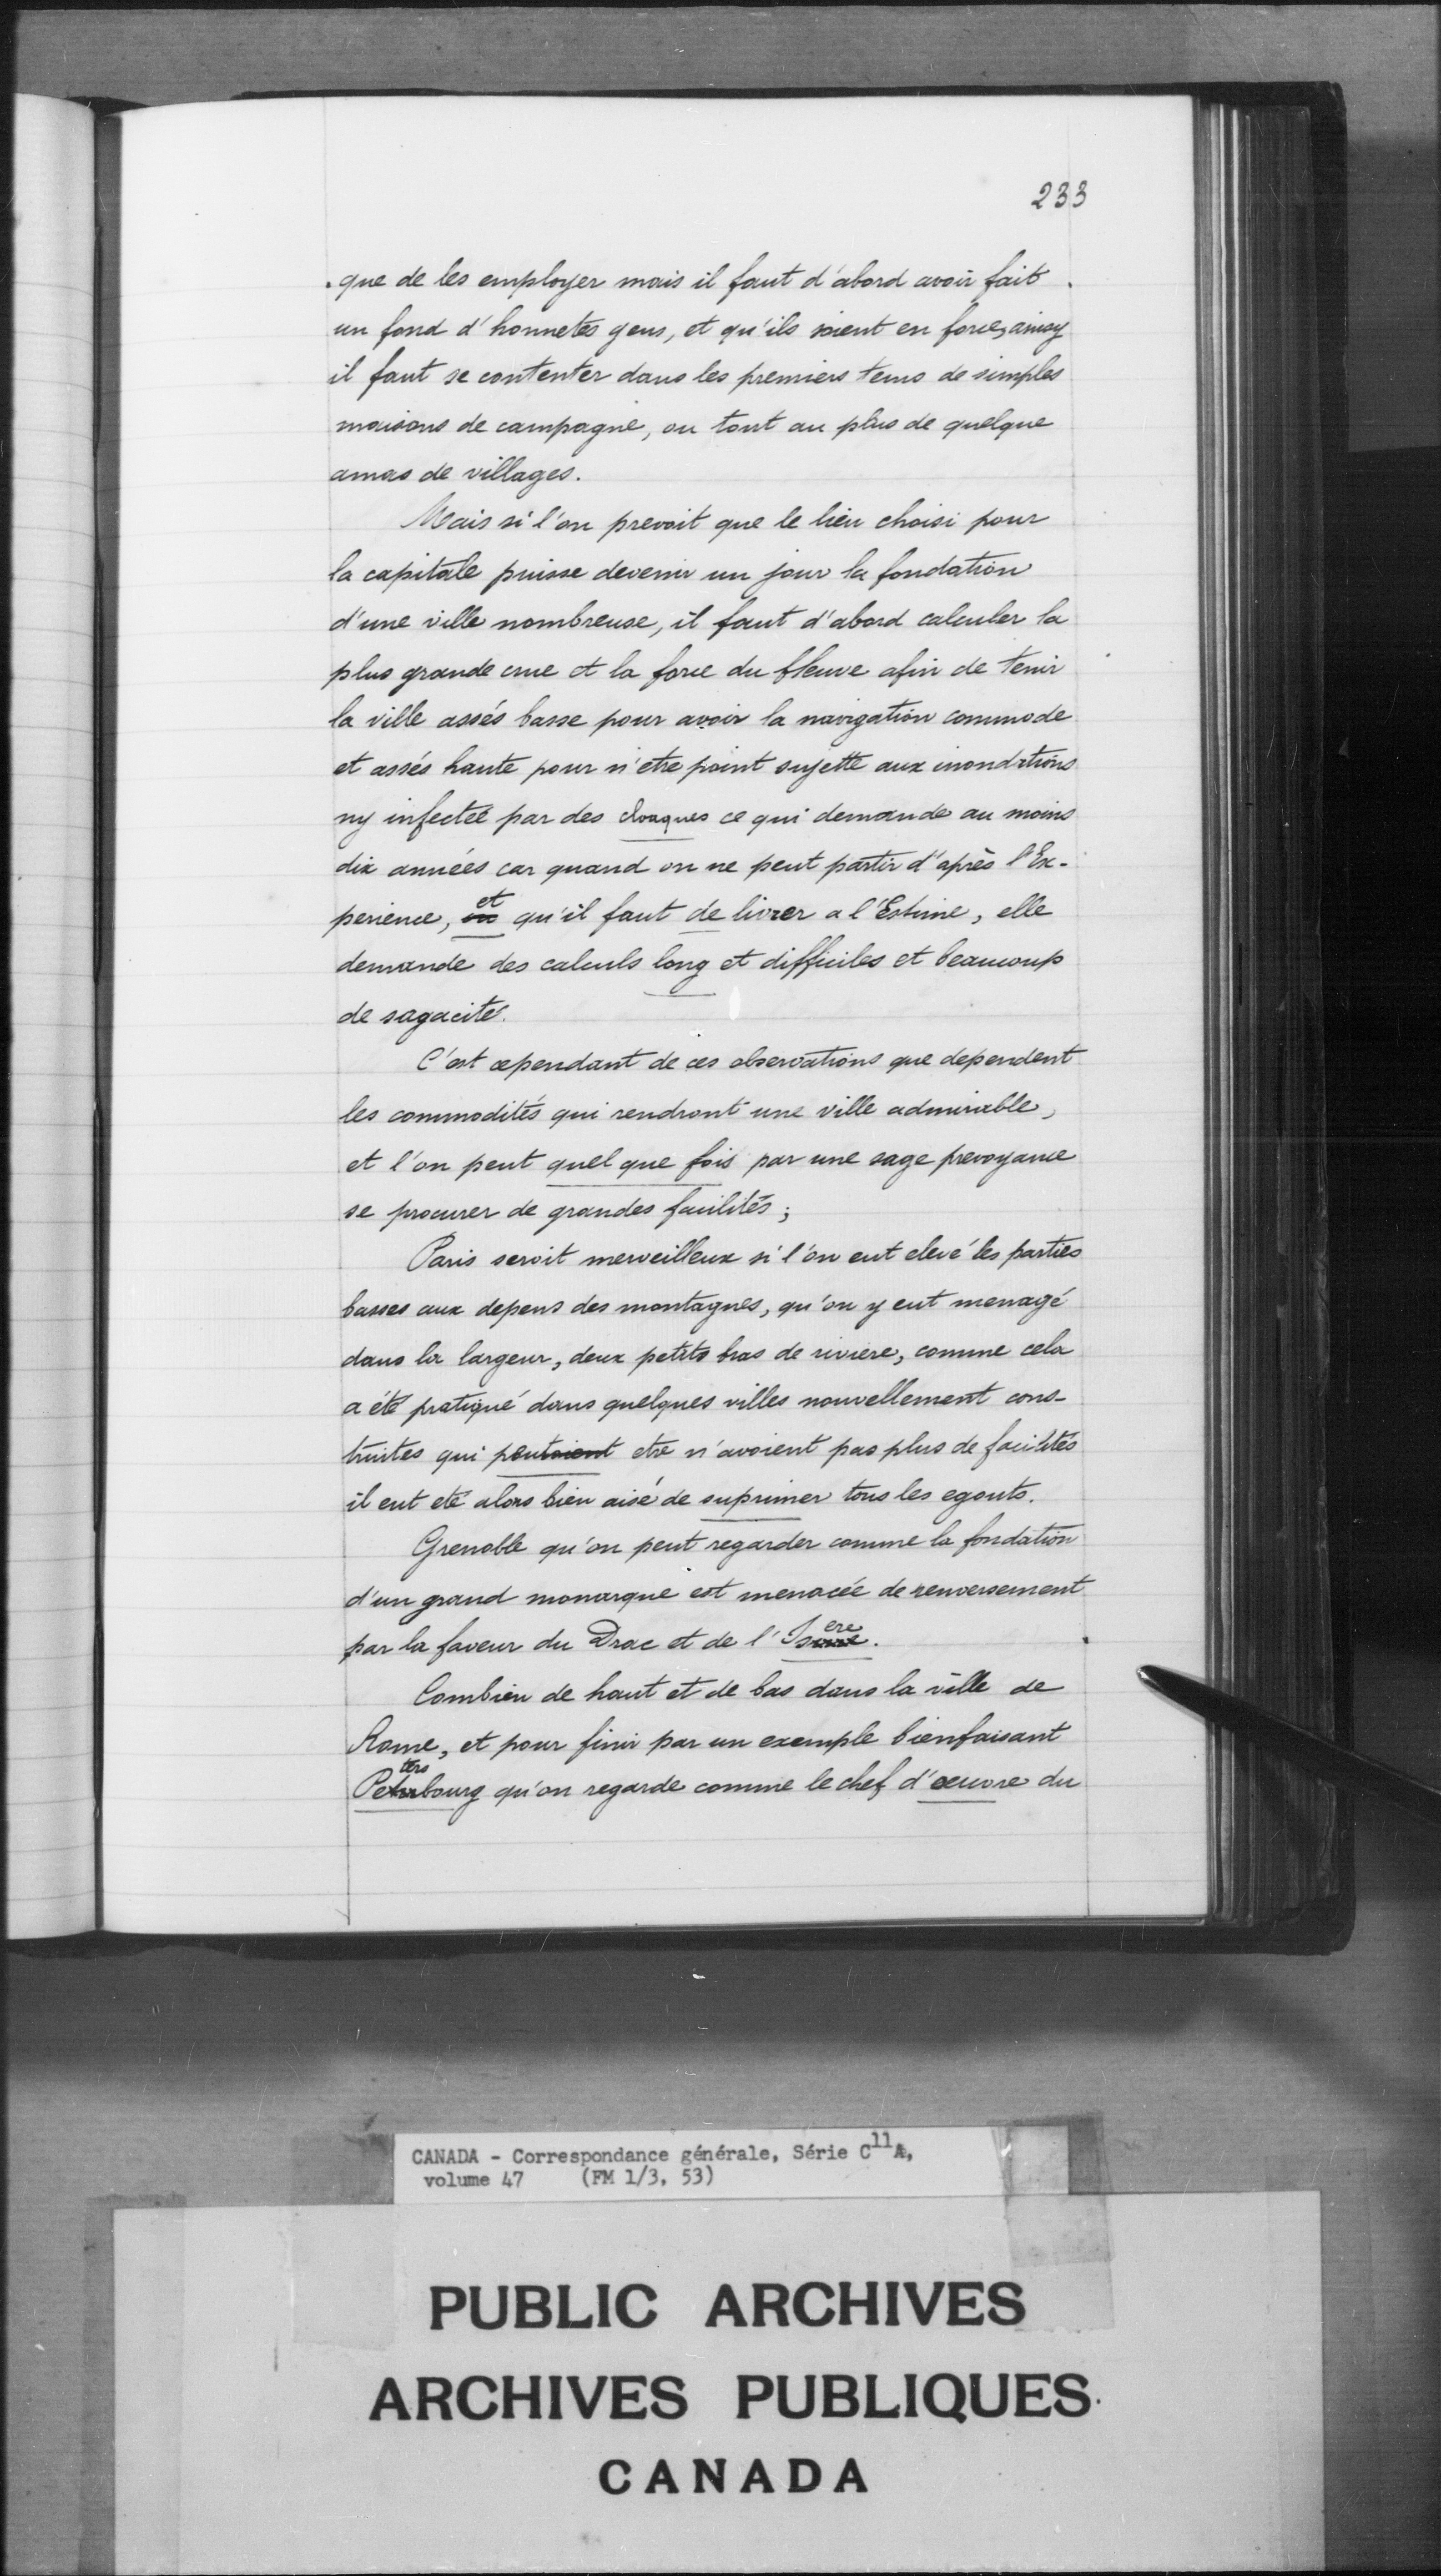 233
que de les employer mais il faut d'abord avoir fait
un fond d'honnetes gens, et qu'ils soient en force, ainsy
il faut se contenter dans les premiers tems de simples
maisons de campagne, ou tout au plus de quelque
amas de villages.
Mais si l'on prevoit que le lieu choisi pour
la capitale puisse devenir un jour la fondation
d'une ville nombreuse, il faut d'abord calculer la
plus grande crue et la force du fleuve afin de tenir
la ville assés basse pour avoir la navigation commode
et assés haute pour n'etre point sujette aux inondations
ny infectée par des cloaques ce qui demande au moins
dix années car quand on ne peut partir d'après l'Ex-
perience, et qu'il faut de livrer a l'Estime, elle
demande des calculs long et difficiles et beaucoup
de sagacité.
C'est cependant de ces observations que dependent
les commodités qui rendront une ville admirable,
et l'on peut quel que fois par une sage prevoyance
se procurer de grandes facilités;
Paris seroit merveilleux si l'on eut elevé les parties
basses aux depens des montagnes, qu'on y eut menagé
dans la largeur, deux petits bras de riviere, comme cela
a été pratiqué dans quelques villes nouvellement cons-
truites qui peutoient etre n'avoient pas plus de facilités
il eut eté alors bien aisé de suprimer tous les egouts.
Grenoble qu'on peut regarder comme la fondation
d'un grand monarque est menacée de renversement
par la faveur du Drac et de l'Isere.
Combien de haut et de bas dans la ville de
Rome, et pour finir par un exemple bienfaisant
Petersbourg qu'on regarde comme le chef d'œuvre du
CANADA - Correspondance générale, Série C11A,
volume 47 (FM 1/3, 53)
PUBLIC ARCHIVES
ARCHIVES PUBLIQUES
CANADA